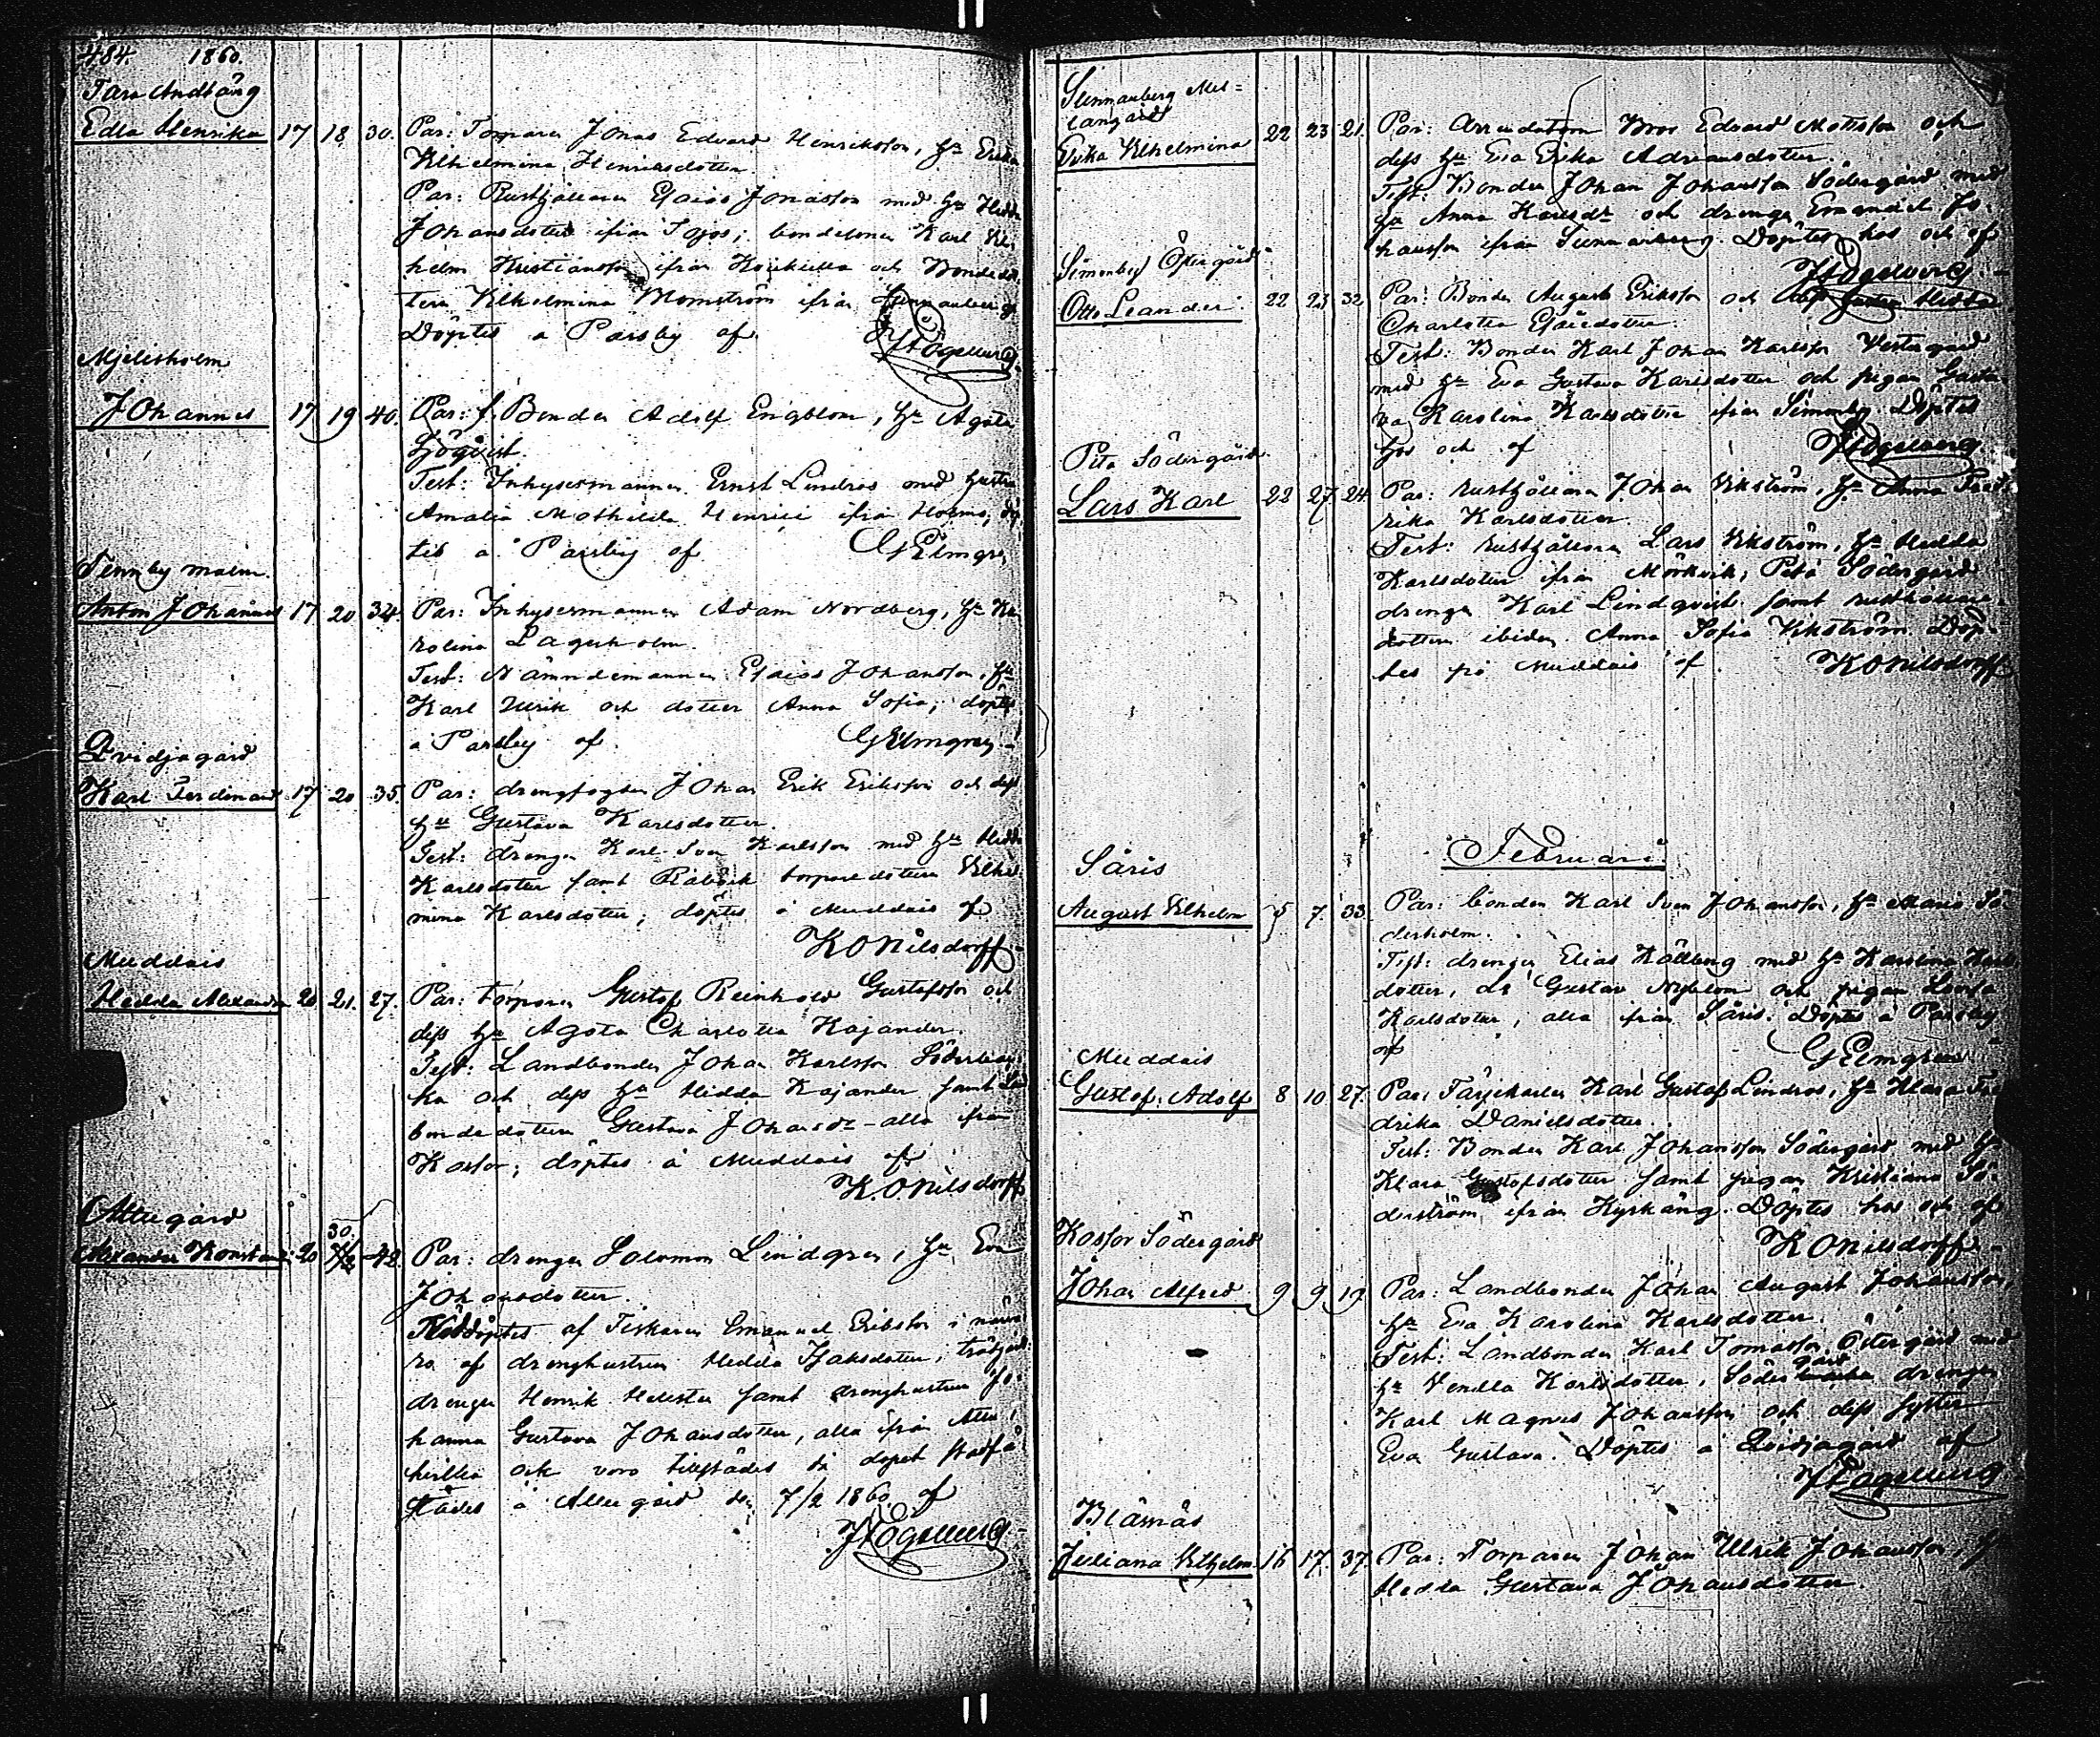 484. 1860.
Tara Andtäng
Edla Henrika 17 18 30. Par: Torparen Jonas Edvard Henriksson, hu Erika
Vilhelmina Henriksdotter.
Par: Rusthållaren Esaias Jonasson med hu Hedda
Johansdotter ifrån; bondesonen Karl Vil
helm Kristiansson ifrån och Bondedot
tern Vilhelmina Blomström ifrån Lennarberg
Döptes a Parsby af
Mjelisholm
Johannes 17 19 40. Par: f. Bonden Adolf Engblom, hu Agata
Sjöqvist.
Test: Inhysesmannen Ernst Lindros med hustru
Amalia Mathilda Henrici ifrån Holmo, döp
tes a Parsby af GElmgren
Tennby malm.
Anton Johannes 17 20 34. Par: Inhysesmannen Adam Nordberg, hu Ka
rolina Lagerholm.
Test: Nämndemannen Esaias Johansson, hu
Karl Ulrik och dotter Anna Sofia; döptes
a Parsby af GElmgren
Qvidjagård
Karl Ferdinand 17 20 35. Par: drengfogden Johan Erik Eriksson och dess
hu Gustava Karlsdotter.
Test: drengen Karl Sven Karlsson med hu Hedda
Karlsdotter samt torparedottern Vilhel
mina Karlsdotter; döptes å Muddais af
KONilsdorff
Muddais
Hedda Alexandra 20 21. 27. Par: torparen Gustaf Reinhold Gustafsson och
dess hu Agata Charlotta Kajander.
Test: Landbonden Johan Karlsson
ka och dess hu Hedda Kajander samt
bondedottern Gustava Johansdr - alla ifrån
Kosfor; döptes å Muddais af
K.ONilsdorff
Attugård 30.
Alexander Konstantin 20 7/2 42. Par: drengen Salomon Lindgren, hu Eva
Johansdotter.
Nöddöptes af Fiskaren Emanuel Eriksson i närva
ro af drenghustrun Hedda Isaksdotter, trädgårds
drengen Henrik Helister samt drenghustrun Jo
hanna Gustava Johansdotter, alla ifrån Attu,
hvilka ock voro tillstädes då dopet stadfä
stades å Attugård den 7/2 1860 af
Lennarberg Mel=
langård
Erika Vilhelmina 22 23 21. Par: Arrendatorn Bror Edvard Mattsson och
dess hu Eva Erika Adriansdotter.
Test: Bonden Johan Johansson Södergård med
hu Anna Karlsdr och drengen Emanuel Jo
hansson ifrån Lennarberg. Döptes hos och af
Simonby Östergård
Otto Leander 22 23 32. Par: Bonden August Eriksson och Hedda
Charlotta Esaiedotter.
Test: Bonden Karl Johan Karlsson Vestergård
med hu Eva Gustava Karlsdotter och pigan Gusta
va Karolina Karlsdotter ifrån Simonby. Döptes
hos och af
Pita Södergård
Lars Karl 22 27 24. Par: rusthållaren Johan Vikström, hu Anna Fred
rika Karlsdotter.
Test: rusthållaren Lars Vikström, hu Hedda
Karlsdotter ifrån Mörkvik; Pita Södergård
drengen Karl Lindqvist samt rusthållare
dottern ibidem Anna Sofia Vikström. Döp
tes på Muddais af KONilsdorff
Februari.
Säris
August Vilhelm 5 7. 33. Par: bonden Karl Sven Johansson, hu Maria Sö
derholm.
Test: drengen Elias Hällberg med hu Karolina Karls
dotter, dr Gustav Nyblom och pigan Lovisa
Karlsdotter, alla ifrån Säris. Döptes å Parsby
af GElmgren
Muddais
Gustaf Adolf 8 10 27. Par: Färjekarlen Karl Gustaf Lindros, hu Klara Fre
drika Danielsdotter.
Test: Bonden Karl Johansson Södergård med hu
Klara Gustafsdotter samt pigan Kristiana Sö
derström ifrån Kyrkäng. Döptes hos och af
KONilsdorff
Kosfor Södergård
Johan Alfred 9 9 19. Par: Landbonden Johan August Johansson,
hu Eva Karolina Karlsdotter.
Test: Landbonden Karl Tomasson Östergård med
hu Vendla Karlsdotter, Södergård drengen
Karl Magnus Johansson och dess syster
Eva Gustava. Döptes å Qvidjagård af
Blåsnäs
Juliana Vilhelm 16 17. 37. Par: Torparen Johan Ulrik Johansson, hu
Hedda Gustava Johansdotter.